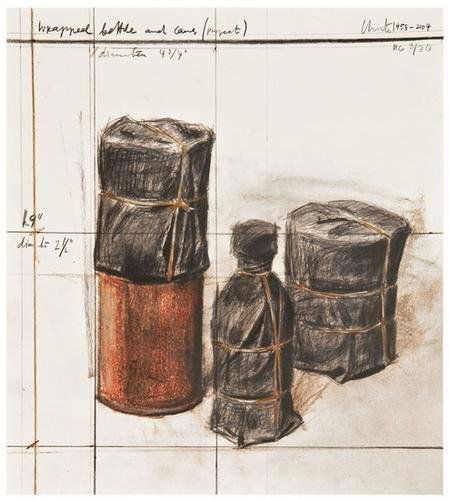 Wrapped bottle and cans (project)
Christo 1958-2004
diameter 4 3/4"
HC 3/20
h. 9"
diam. 2 1/2"